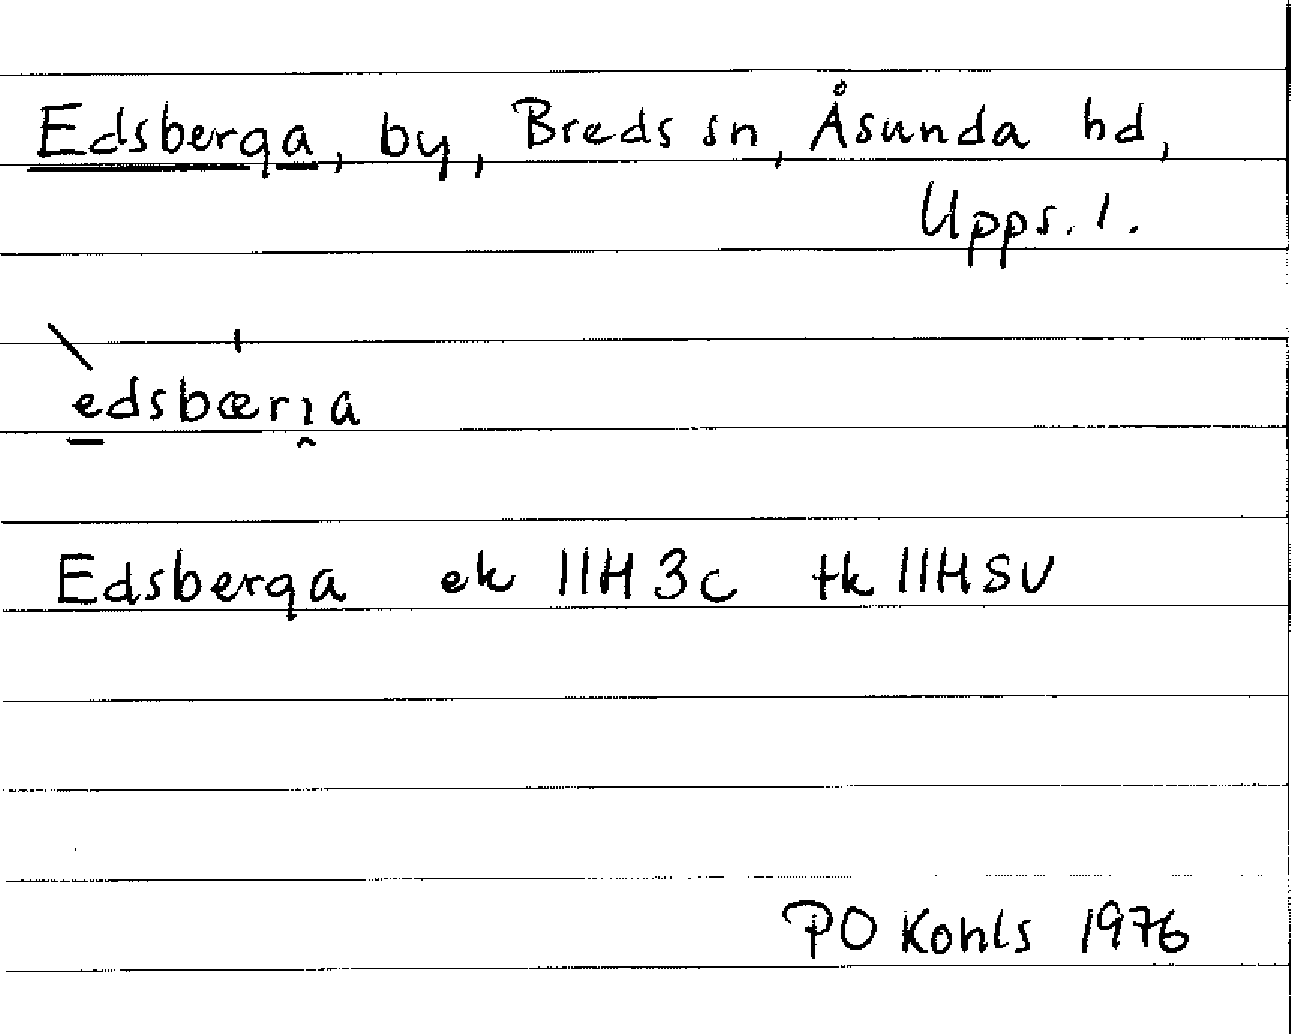 Edsberga, by, Breds sn, Åsunda hd,
Upps. l.
edsbærı̯a
Edsberga ek 11H 3c tk 11HSV
PO Kohls 1976